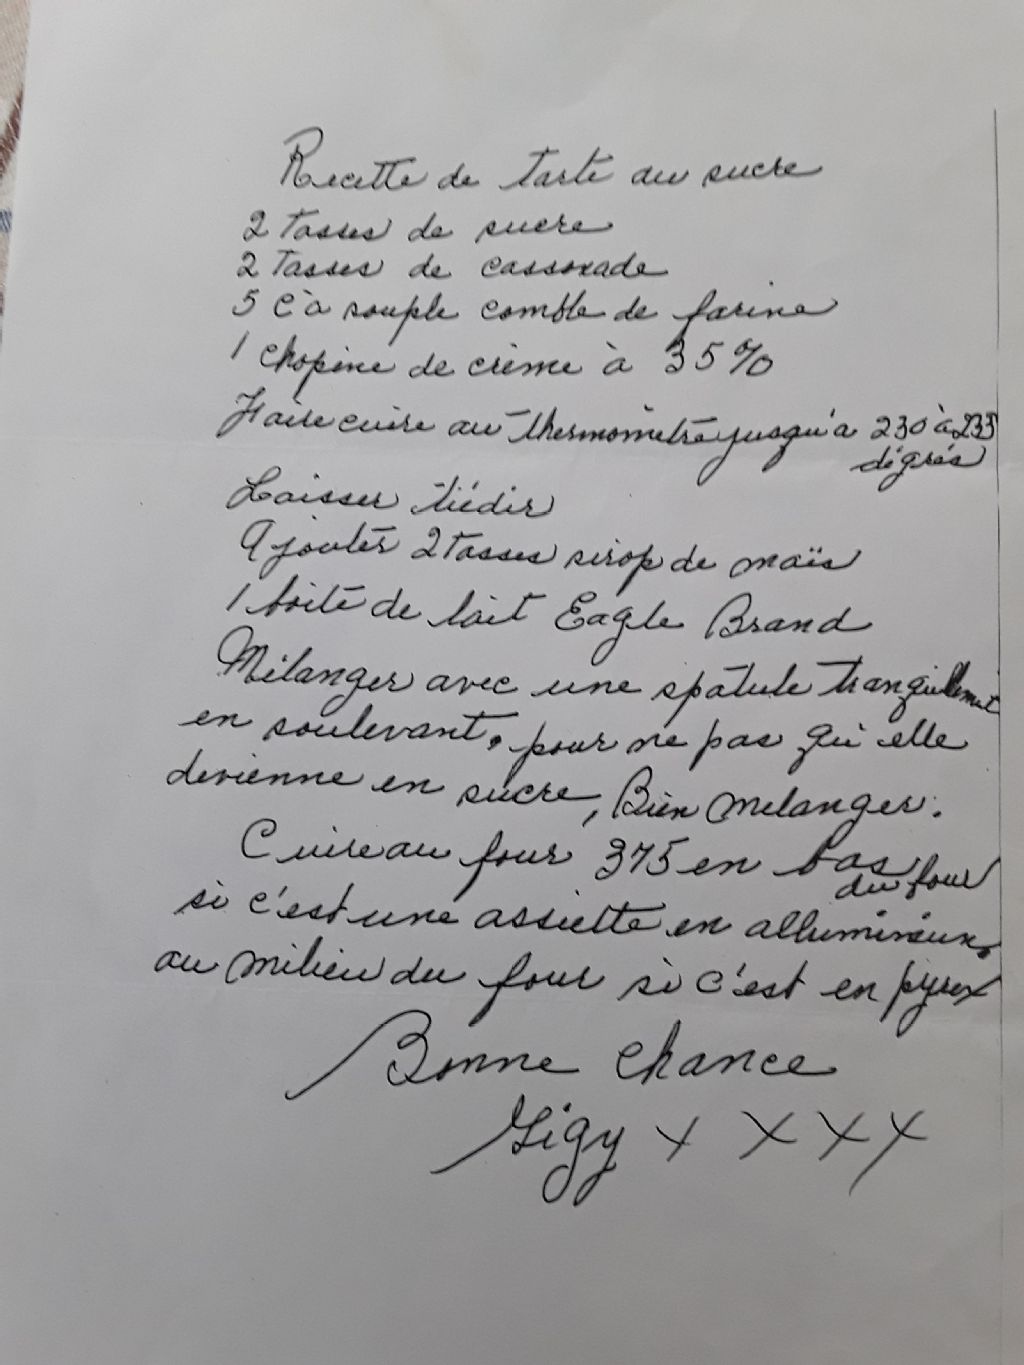 Recette de tarte au sucre
2 Tasses de sucre
2 Tasses de cassonade
5 c à souple comble de farine
1 chopine de crème à 35%
Faire cuire au thermomètre jusqu'a 230 à 235
dégrés
Laisser tiédir
Ajouter 2 tasses sirop de maïs
1 boite de lait Eagle Brand
Mélanger avec une spatule tranquilement
en soulevant, pour ne pas qu'elle
devienne en sucre, Bien melanger.
Cuire au four 375 en bas
du four
si c'est une assiette en alluminium,
au milieu du four si c'est en pyrex
Bonne chance
Gigy x x x x